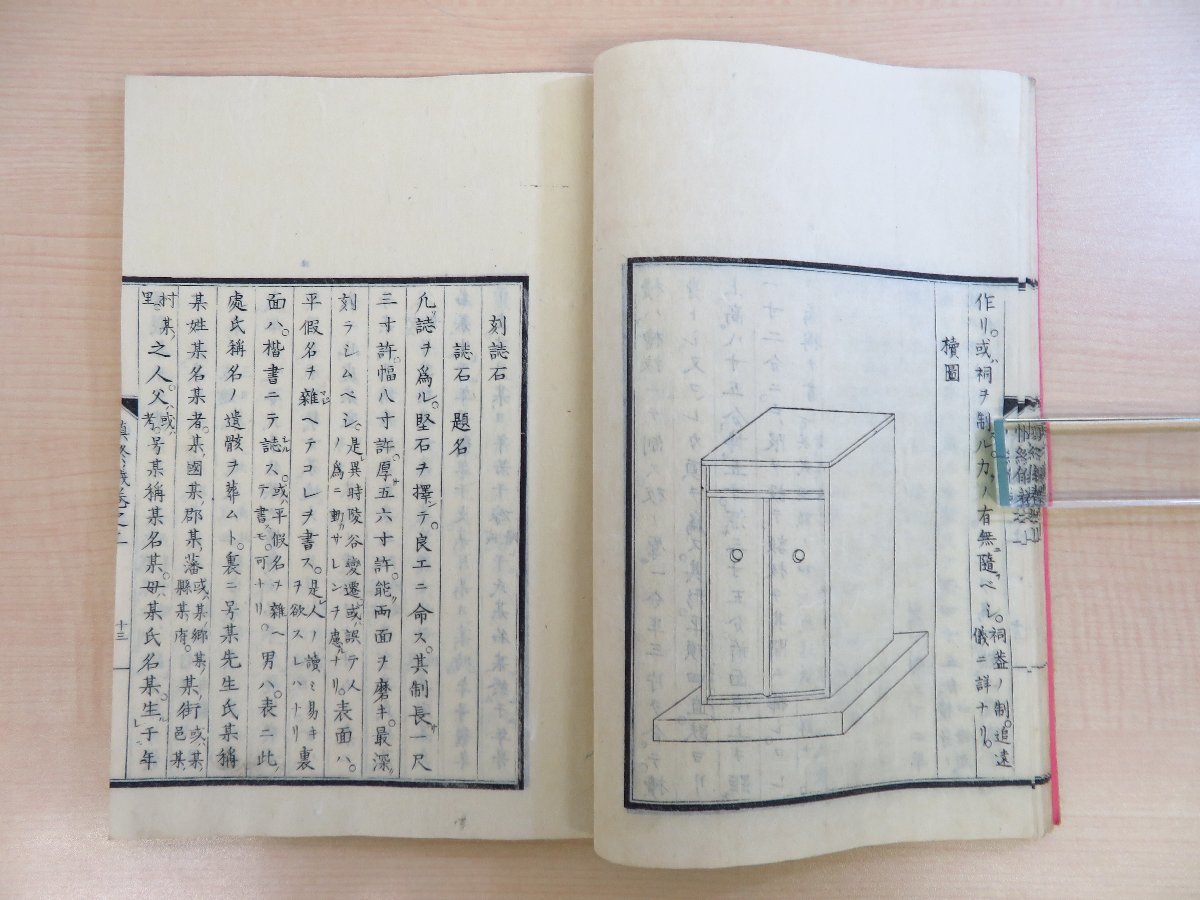 作リ。或ハ祠ヲ制ルカノ有無ニ隨フベシ。祠並ノ制。追遠
儀ニ詳ナリ。
櫝圖
刻誌石
誌石題名
凡誌ヲ爲ル。堅石ヲ擇テ。良工ニ命ス。其制長サ一尺
三寸許。幅八寸許。厚サ五六寸許。能兩面ヲ磨キ。最深ク
刻ラシムベシ。是異時陵谷變遷或ハ誤テ人ノ爲ニ動カサレンヲ慮ナリ。表面ハ。
平假名ヲ雜ヘテコレヲ書ス。是人ノ讀ミ易キヲ欲スレハナリ裏
面ハ。楷書ニテ誌ス。或ハ平假名ヲ雜ヘテ書スモ。可ナリ。男ハ。表ニ此
處氏稱名ノ遺骸ヲ葬ムト。裏ニ号某先生氏某稱
某姓某名某者。某國某郡某藩或ハ某縣某府。某郷某街或ハ某邑某
村某里。之人。父或ハ考。号某稱某名某。母某氏名某。生ル于年
愼終儀卷之二
十三